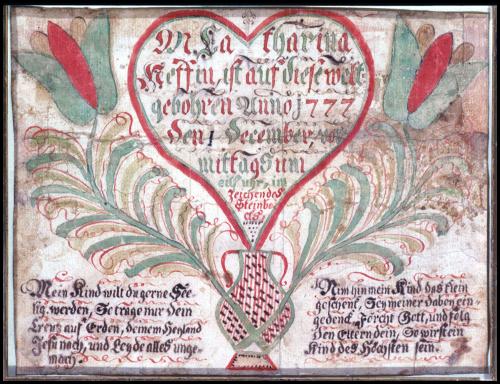 M. Ca tharina
Keffin, ist auf diese welt
gebohren Anno 1777
Den 1 December, vor
mittags um
eilf uhr, im
Zeichen des
Steinbo
cks
Mein Kind wilt du gerne See-
lig werden, So trage nur Dein
Creuz auf Erden, deinem Heyland
Jesu nach, und Leyde alles unge-
mach.
Nim hin mein Kind das klein
geschenk, Sey meiner dabey ein-
gedenck, Förcht Gott, und folg
Den Eltern dein, So wirst ein
Kind des Höchsten sein.